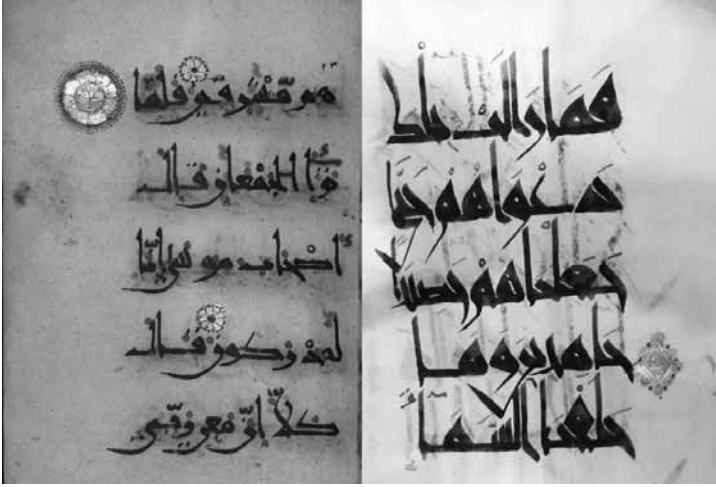 فما زالت تلك
دعواهم حتى
جعلناهم حصيدا
خامدين وما
خلقنا السماء
هم مشرقين فلما
ترءا الجمعان قال
أصحاب موسى إنا
لمدركون قال
كلا إن معي ربي